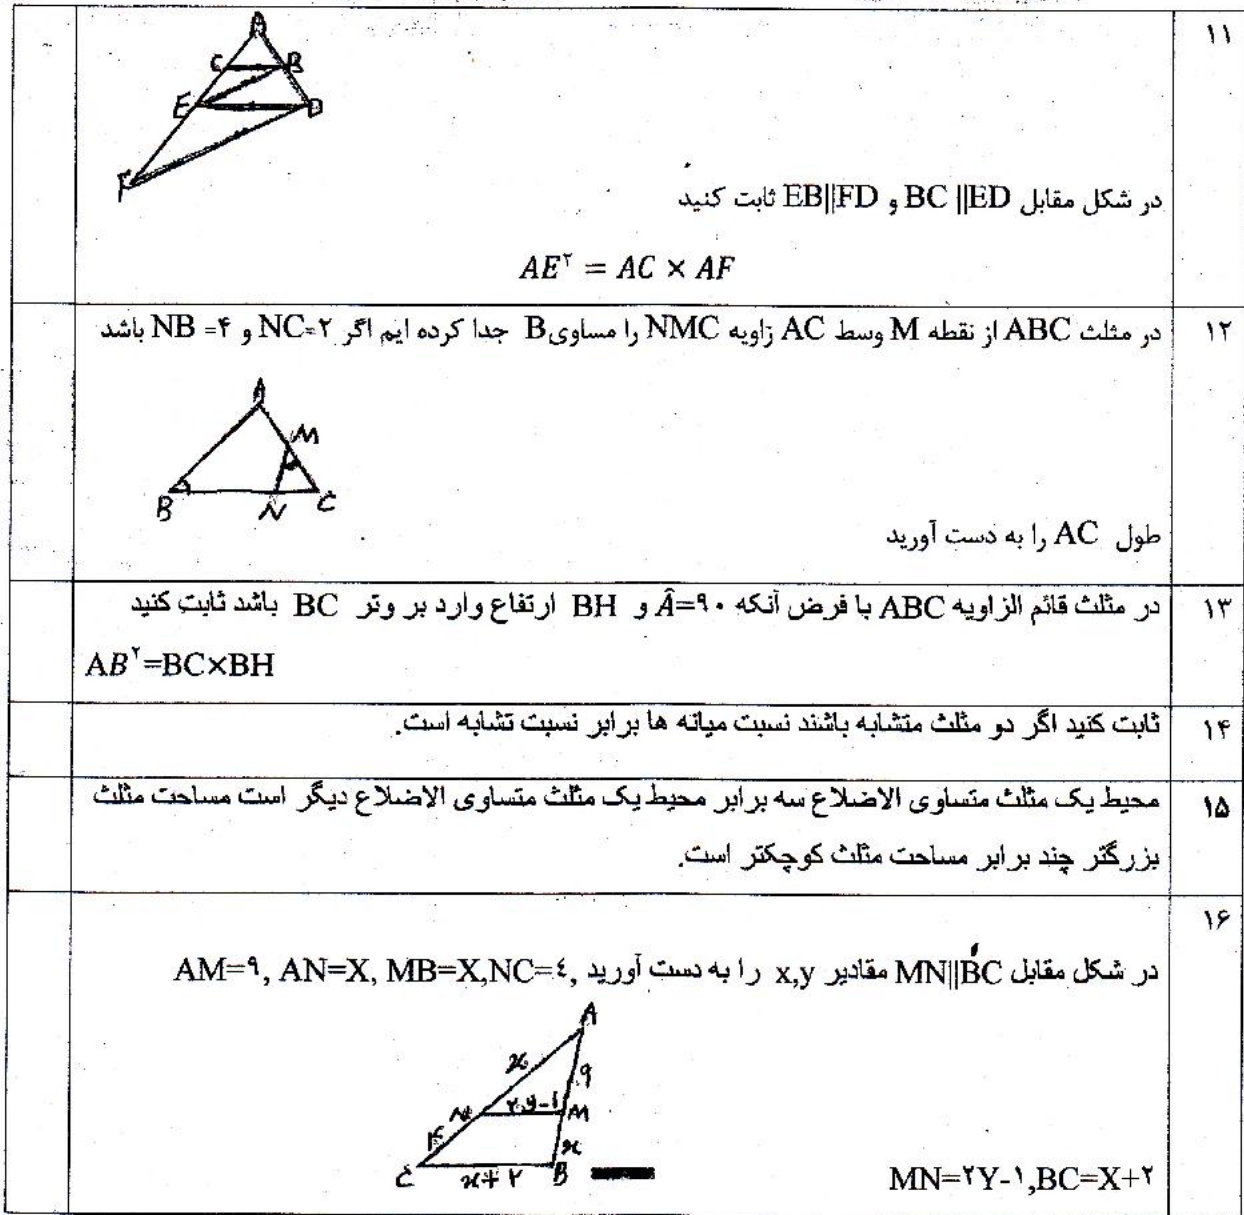 ۱۱
A
C B
E D
F
در شکل مقابل BC ||ED و EB||FD ثابت کنید
AE۲ = AC × AF
۱۲
در مثلث ABC از نقطه M وسط AC زاویه NMC را مساویB جدا کرده ایم اگر NC=۲ و NB =۴ باشد
A
M
B N C
طول AC را به دست آورید
۱۳
در مثلث قائم الزاویه ABC با فرض آنکه Â=۹۰ و BH ارتفاع وارد بر وتر BC باشد ثابت کنید
AB۲=BC×BH
۱۴
ثابت کنید اگر دو مثلث متشابه باشند نسبت میانه ها برابر نسبت تشابه است.
۱۵
محیط یک مثلث متساوی الاضلاع سه برابر محیط یک مثلث متساوی الاضلاع دیگر است مساحت مثلث
بزرگتر چند برابر مساحت مثلث کوچکتر است.
۱۶
در شکل مقابل MN||BC مقادیر x,y را به دست آورید AM=۹, AN=X, MB=X,NC=٤,
A
x ۹
N ۲y-۱ M
۴ x
C x+۲ B
MN=۲Y-۱,BC=X+۲